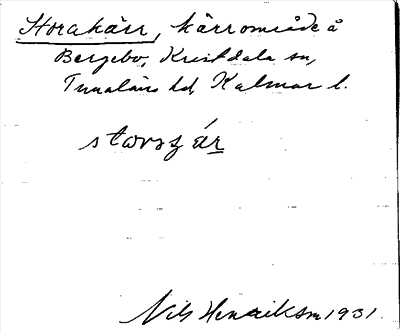 Storakärr, kärrområde å
Bergebo, Kristdala sn,
Tunaläns hd, Kalmar l.
Nils Henriksson 1931.